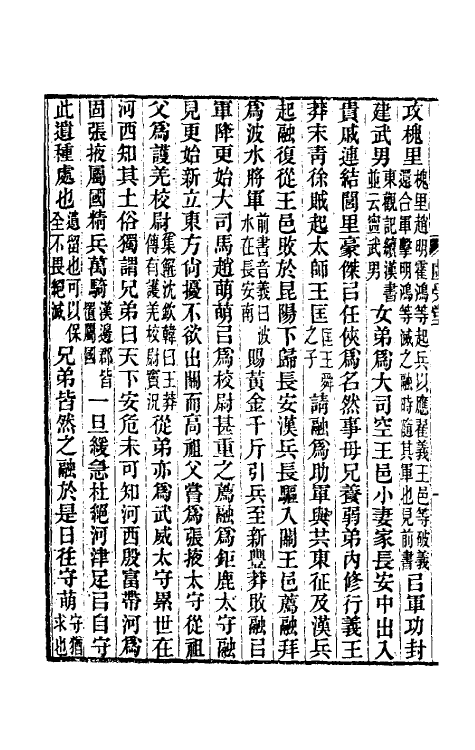 攻槐里槐里趙明霍鴻等起兵以應翟義王邑等破義還合軍擊明鴻等滅之融時隨其軍也見前書㠯軍功封
建武男東觀記續漢書並云寧武男女弟爲大司空王邑小妻家長安中出入
貴戚連結閭里豪傑㠯任俠爲名然事母兄養弱弟內修行義王
莽末靑徐賊起太師王匡匡王舜之子請融爲助軍與共東征及漢兵
起融復從王邑敗於昆陽下歸長安漢兵長驅入關王邑薦融拜
爲波水將軍前書音義曰波水在長安南賜黃金千斤引兵至新豐莽敗融㠯
軍降更始大司馬趙萌萌㠯爲校尉甚重之薦融爲鉅鹿太守融
見更始新立東方尚擾不欲出關而高祖父嘗爲張掖太守從祖
父爲護羌校尉集解沈欽韓曰王莽傳有護羌校尉竇況從弟亦爲武威太守累世在
河西知其土俗獨謂兄弟曰天下安危未可知河西殷富帶河爲
固張掖屬國精兵萬騎漢邊郡皆置屬國一旦緩急杜絕河津足㠯自守
此遺種處也遺留也可以保全不畏絕滅兄弟皆然之融於是日往守萌守猶求也